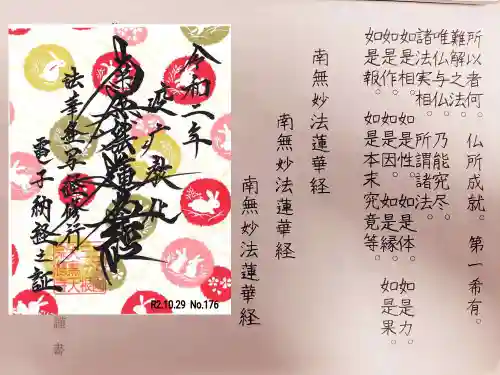 所以者何。 仏所成就。 第一希有。
難解之法。
唯仏与仏。 乃能究尽。
諸法実相。 所謂諸法。
如是相。 如是性。 如是体。 如是力。
如是作。 如是因。 如是縁。 如是果。
如是報。 如是本末究竟等。
南無妙法蓮華経
南無妙法蓮華経
南無妙法蓮華経
令和二年
疫病
南無妙法蓮華経
法華経写経修行
電子納経之証
R2.10.29 No.176
謹書